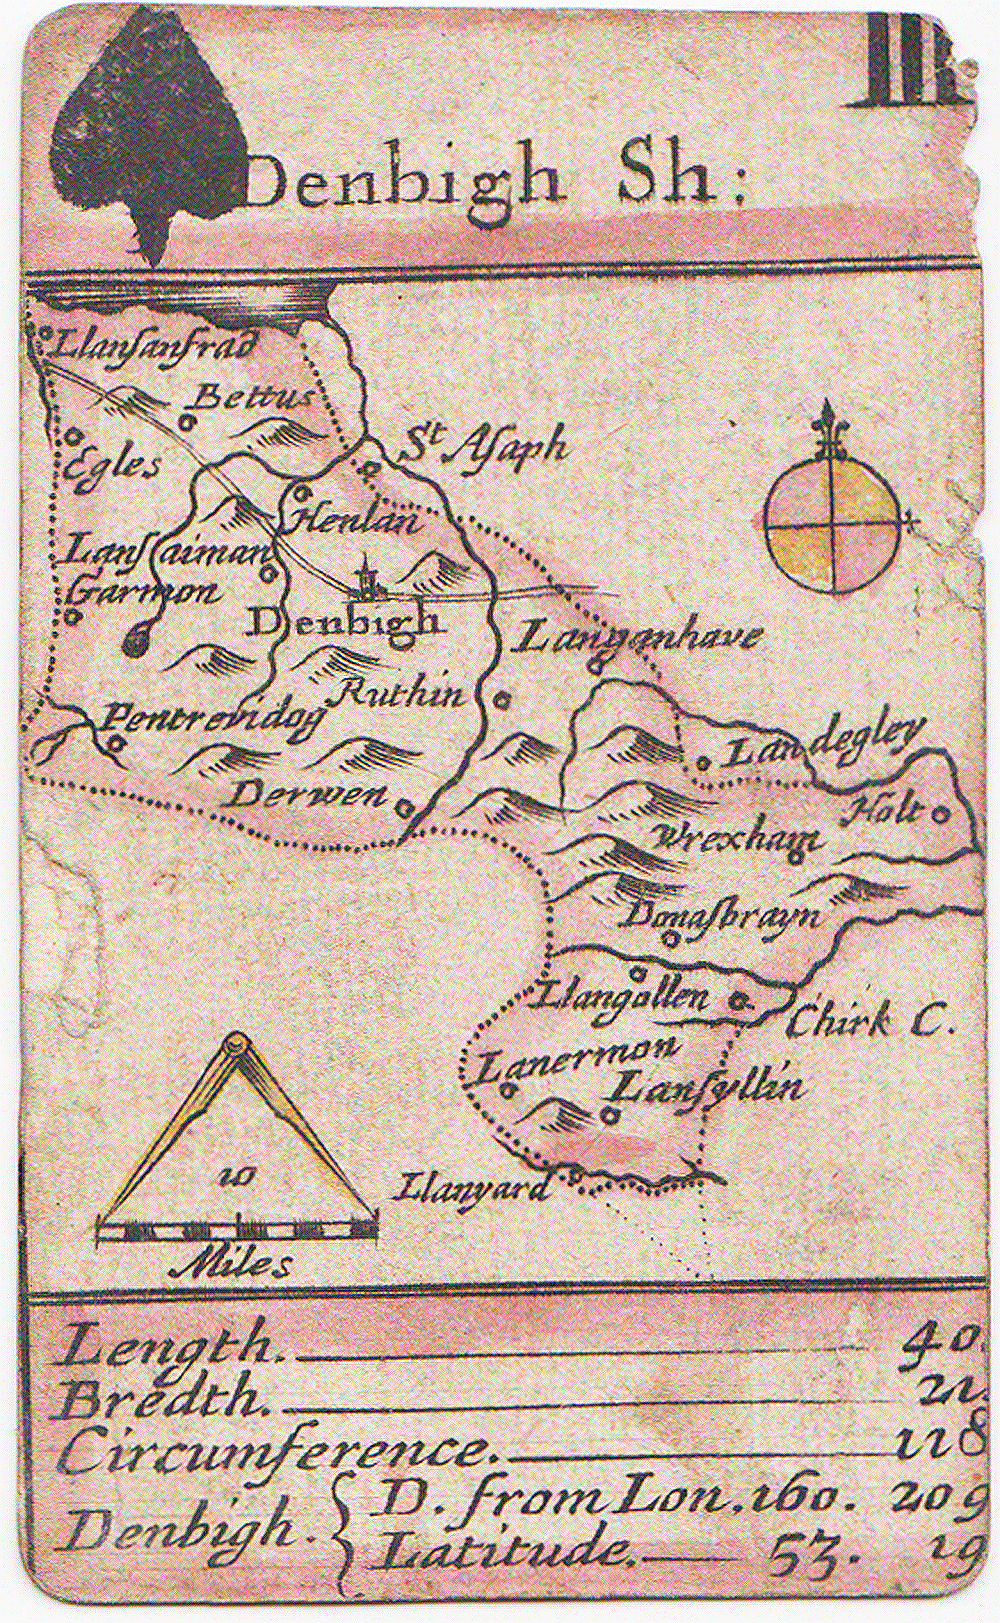 III
Denbigh Sh:
Llanſanfrad
Bettus
Egles
St Aſaph
Henlan
Lanſaiman
Garmon
Denbigh
Lanyanhave
Ruthin
Pentrevidog
Landegley
Derwen
Holt
Wrexham
Dinaſbrayn
Llangollen
Chirk C.
Lanermon
Lanſyllin
Llanyard
10
Miles
Length. 40.
Bredth. 21.
Circumference. 118
Denbigh. { D. from Lon. 160. 209
Latitude. 53. 19